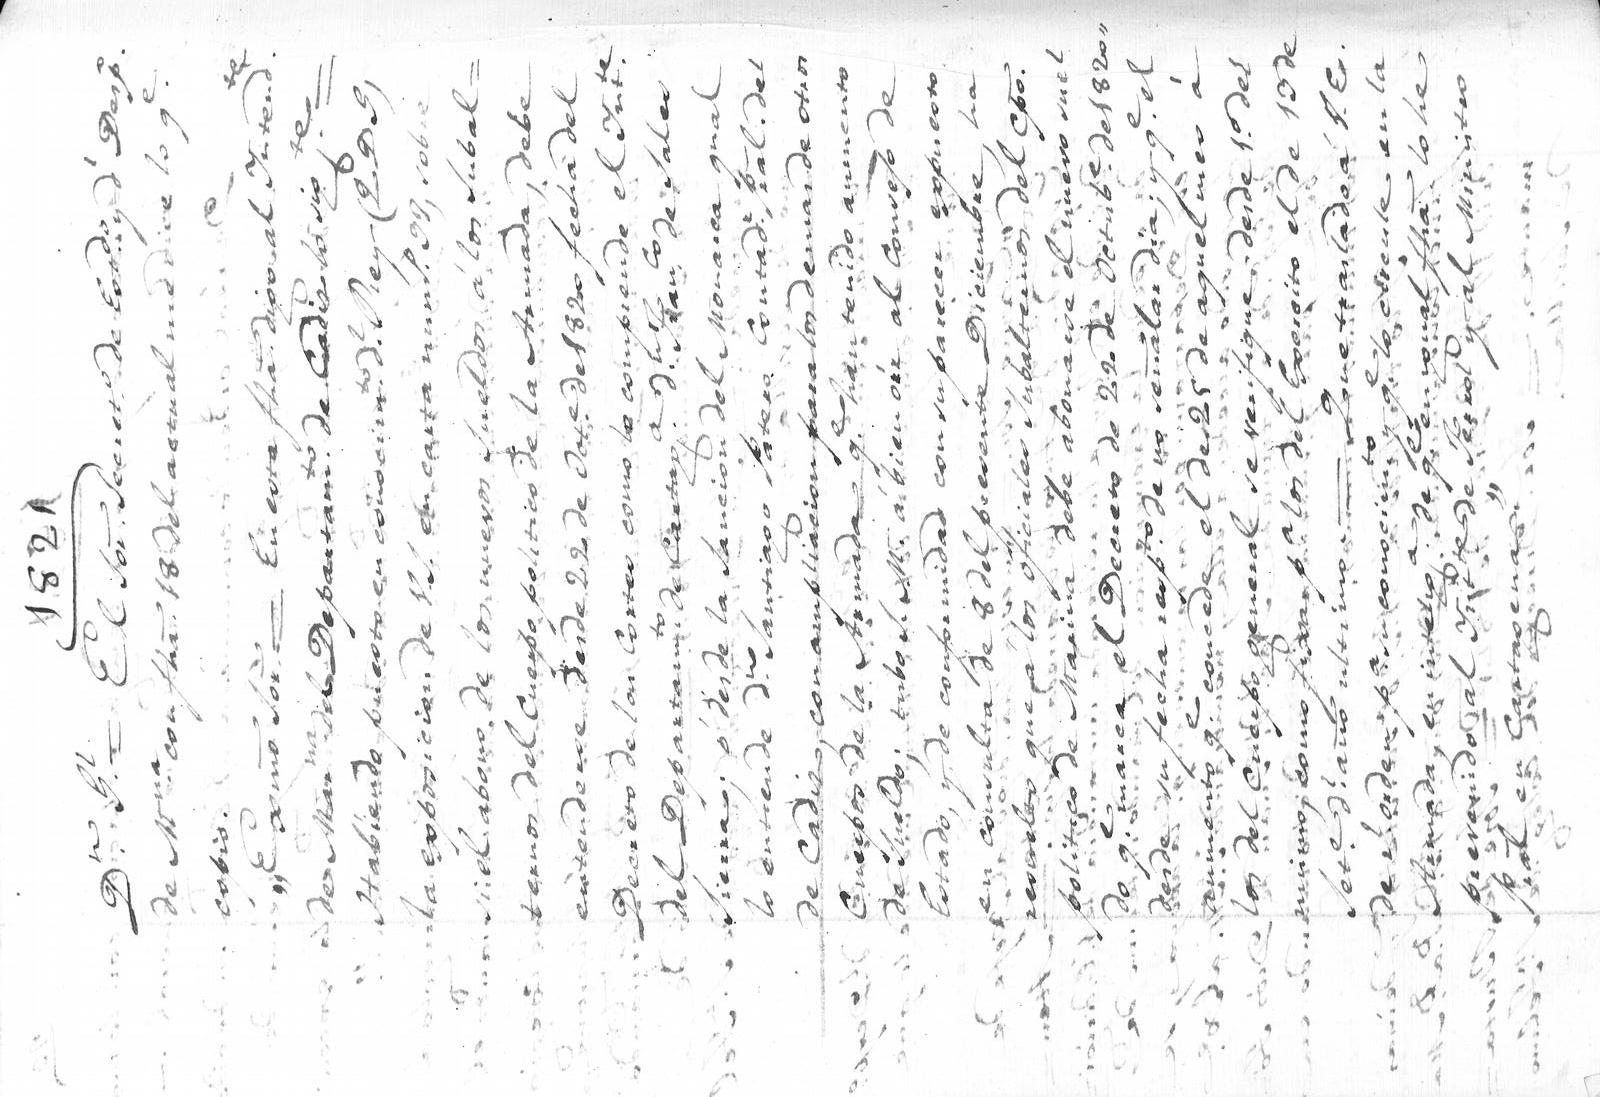 1821
Dn Gl = El Sor. Secreto. de Estado y dl Desp.o
de Mona con fha. 18 del actual me dice lo qe
copio.
"Excmo Sor. = En esta fha digo al Intendte
de Mar. na del Departamto de Cadiz lo sigte =
"Habiendo puesto en conocimto dl Rey (Q D G)
la exposicion de V.S. en carta num.o 99, sobre
si el abono de los nuevos sueldos á los subal=
ternos del Cuerpo politico de la Armada, debe
entenderse desde 22 de Oct.e de 1820 fecha del
Decreto de las Cortes como lo comprende el Intte
del Departamto de Cartaga d.n Juan Co de Salas
Sierra; ó desde la sancion del Monarca qual
lo entiende dn Santiago Patero Contadr pral. del
de Cadiz, con ampliacion para los demas de otros
Cuerpos de la Armada qe han tenido aumento
de sueldo; tubo S. M. á bien oir al Consejo de
Estado, y de conformidad con su parecer expuesto
en consulta de 8 del presente Diciembre, ha
resuelto que á los oficiales subalternos del Cpo.
politico de Marina debe abonarse el nuevo suel
do qe marca el Decreto de 22 de Octubre de 1820"
desde su fecha respto de no señalar dia; y qe el
aumento qe concede el de 25 de aquel mes á
los del Cuerpo general se verifique desde 1o del
mismo, como fixan pa los del Exercito el de 13 de
Set.e diario ultimo = Que traslado á V. E.
de rl orden pa su conocimto y qe lo circule en la
Armada, en intela de qe con igual fha lo he
prevenido al Intte de ese Depto y al Ministro
pral en Cartagena"